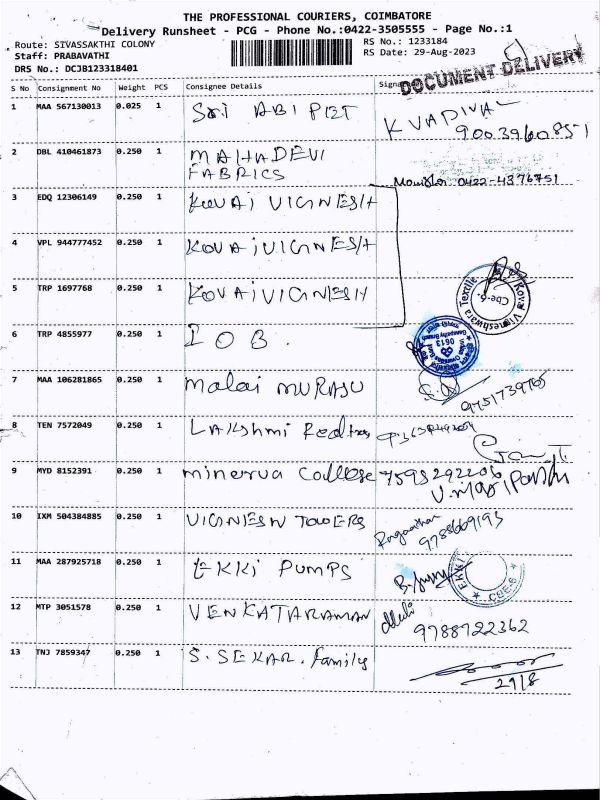 THE PROFESSIONAL COURIERS, COIMBATORE
Delivery Runsheet - PCG - Phone No.:0422-3505555 - Page No.:1
Route: SIVASSAKTHI COLONY
RS No.: 1233184
Staff: PRABAVATHI
RS Date: 29-Aug-2023
DRS No.: DCJB123318401
DOCUMENT DELIVERY
S No Consignment No Weight PCS Consignee Details
1 MAA 567130013 0.025 1 Sri ABI PET K VADIVAL
9003960851
2 DBL 410461873 0.250 1 MAHADEVI
FABRICS
0422-4376751
3 EDQ 12306149 0.250 1 KOVAI VIGNESH
4 VPL 944777452 0.250 1 KOVAI VIGNESH
5 TRP 1697768 0.250 1 KOVAI VIGNESH
Kovai Vigneshwara Textile
Cbe-6.
6 TRP 4855977 0.250 1 I O B.
0613
7 MAA 106281865 0.250 1 Malai MURASU
9751739765
8 TEN 7572049 0.250 1 LAKshmi
9 MYD 8152391 0.250 1 minerva College 7595292206
10 IXM 504384885 0.250 1 VIGNESH TOWERS
9788669193
11 MAA 287925718 0.250 1 EKKI PUMPS
EKKI
CBE-6
12 MTP 3051578 0.250 1 VENKATARAMAN
9788722362
13 TNJ 7859347 0.250 1 S. SEKAR. family
29/8